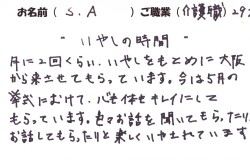 お名前( S.A )ご職業(介護職)29
"いやしの時間"
月に2回くらい、いやしをもとめに大阪
から来させてもらっています。今は5月の
挙式にむけて、バも体もキレイにして
もらっています。色々お話を聞いてもらったり、
お話してもらったりと楽しくいやされています